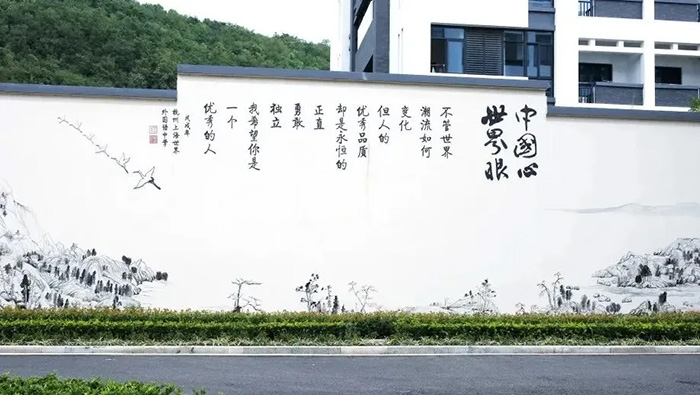 中國心
世界眼
不管世界
潮流如何
变化
但人的
优秀品质
却是永恒的
正直
勇敢
独立
我希望你是
一个
优秀的人
戊戌年
杭州上海世界
外国语中学